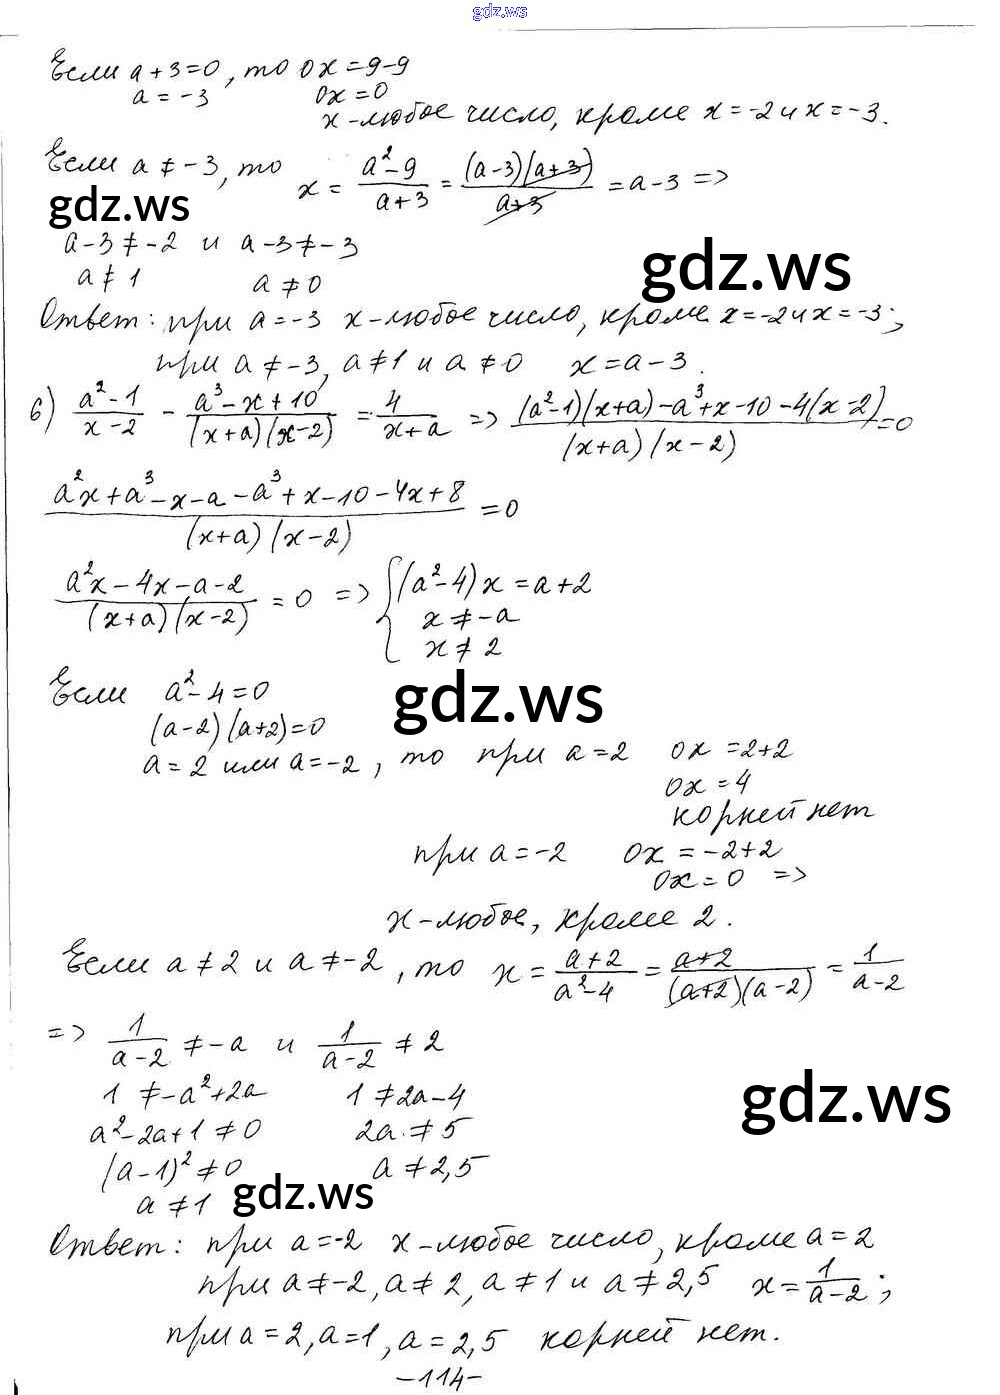 gdz.ws
Если a+3=0, то 0x=9-9
a=-3 0x=0
x-любое число, кроме x=-2 и x=-3.
Если a≠-3, то x = (a²-9)/(a+3) = ((a-3)(a+3))/(a+3) = a-3 =>
gdz.ws
a-3≠-2 и a-3≠-3
gdz.ws
a≠1 a≠0
Ответ: при a=-3 x-любое число, кроме x=-2 и x=-3;
при a≠-3, a≠1 и a≠0 x=a-3.
б) (a²-1)/(x-2) - (a³-x+10)/((x+a)(x-2)) = 4/(x+a) => ((a²-1)(x+a)-a³+x-10-4(x-2))/((x+a)(x-2)) =0
(a²x+a³-x-a-a³+x-10-4x+8)/((x+a)(x-2)) =0
(a²x-4x-a-2)/((x+a)(x-2)) = 0 => { (a²-4)x=a+2
x≠-a
x≠2
Если a²-4=0
gdz.ws
(a-2)(a+2)=0
a=2 или a=-2, то при a=2 0x=2+2
0x=4
корней нет
при a=-2 0x=-2+2
0x=0 =>
x-любое, кроме 2.
Если a≠2 и a≠-2, то x = (a+2)/(a²-4) = (a+2)/((a+2)(a-2)) = 1/(a-2)
=> 1/(a-2) ≠-a и 1/(a-2) ≠2
1≠-a²+2a 1≠2a-4
gdz.ws
a²-2a+1≠0 2a≠5
(a-1)²≠0 a≠2,5
gdz.ws
a≠1
Ответ: при a=-2 x-любое число, кроме a=2
при a≠-2, a≠2, a≠1 и a≠2,5 x=1/(a-2);
при a=2, a=1, a=2,5 корней нет.
-114-